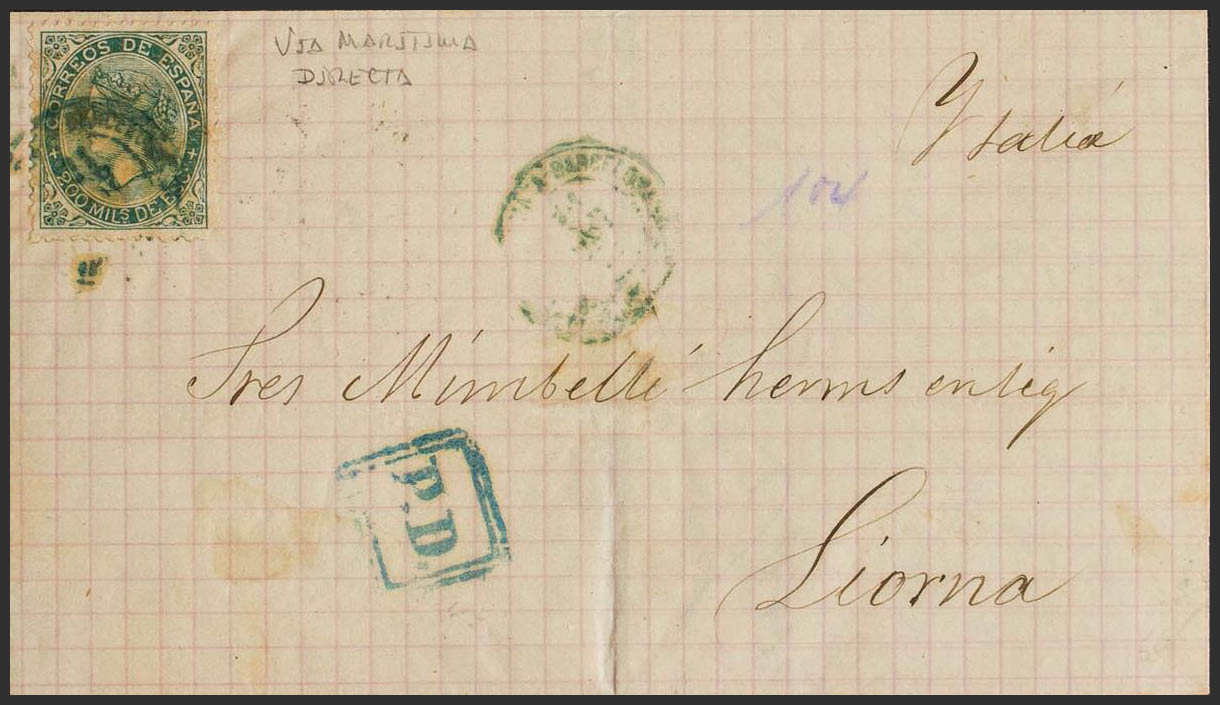 CORREOS DE ESPAÑA
200 MILS DE ESC
VIA MARITIMA
DIRECTA
Ytalia
BARCELONA
Sres Mimbelli herms en liq
P.D.
Liorna